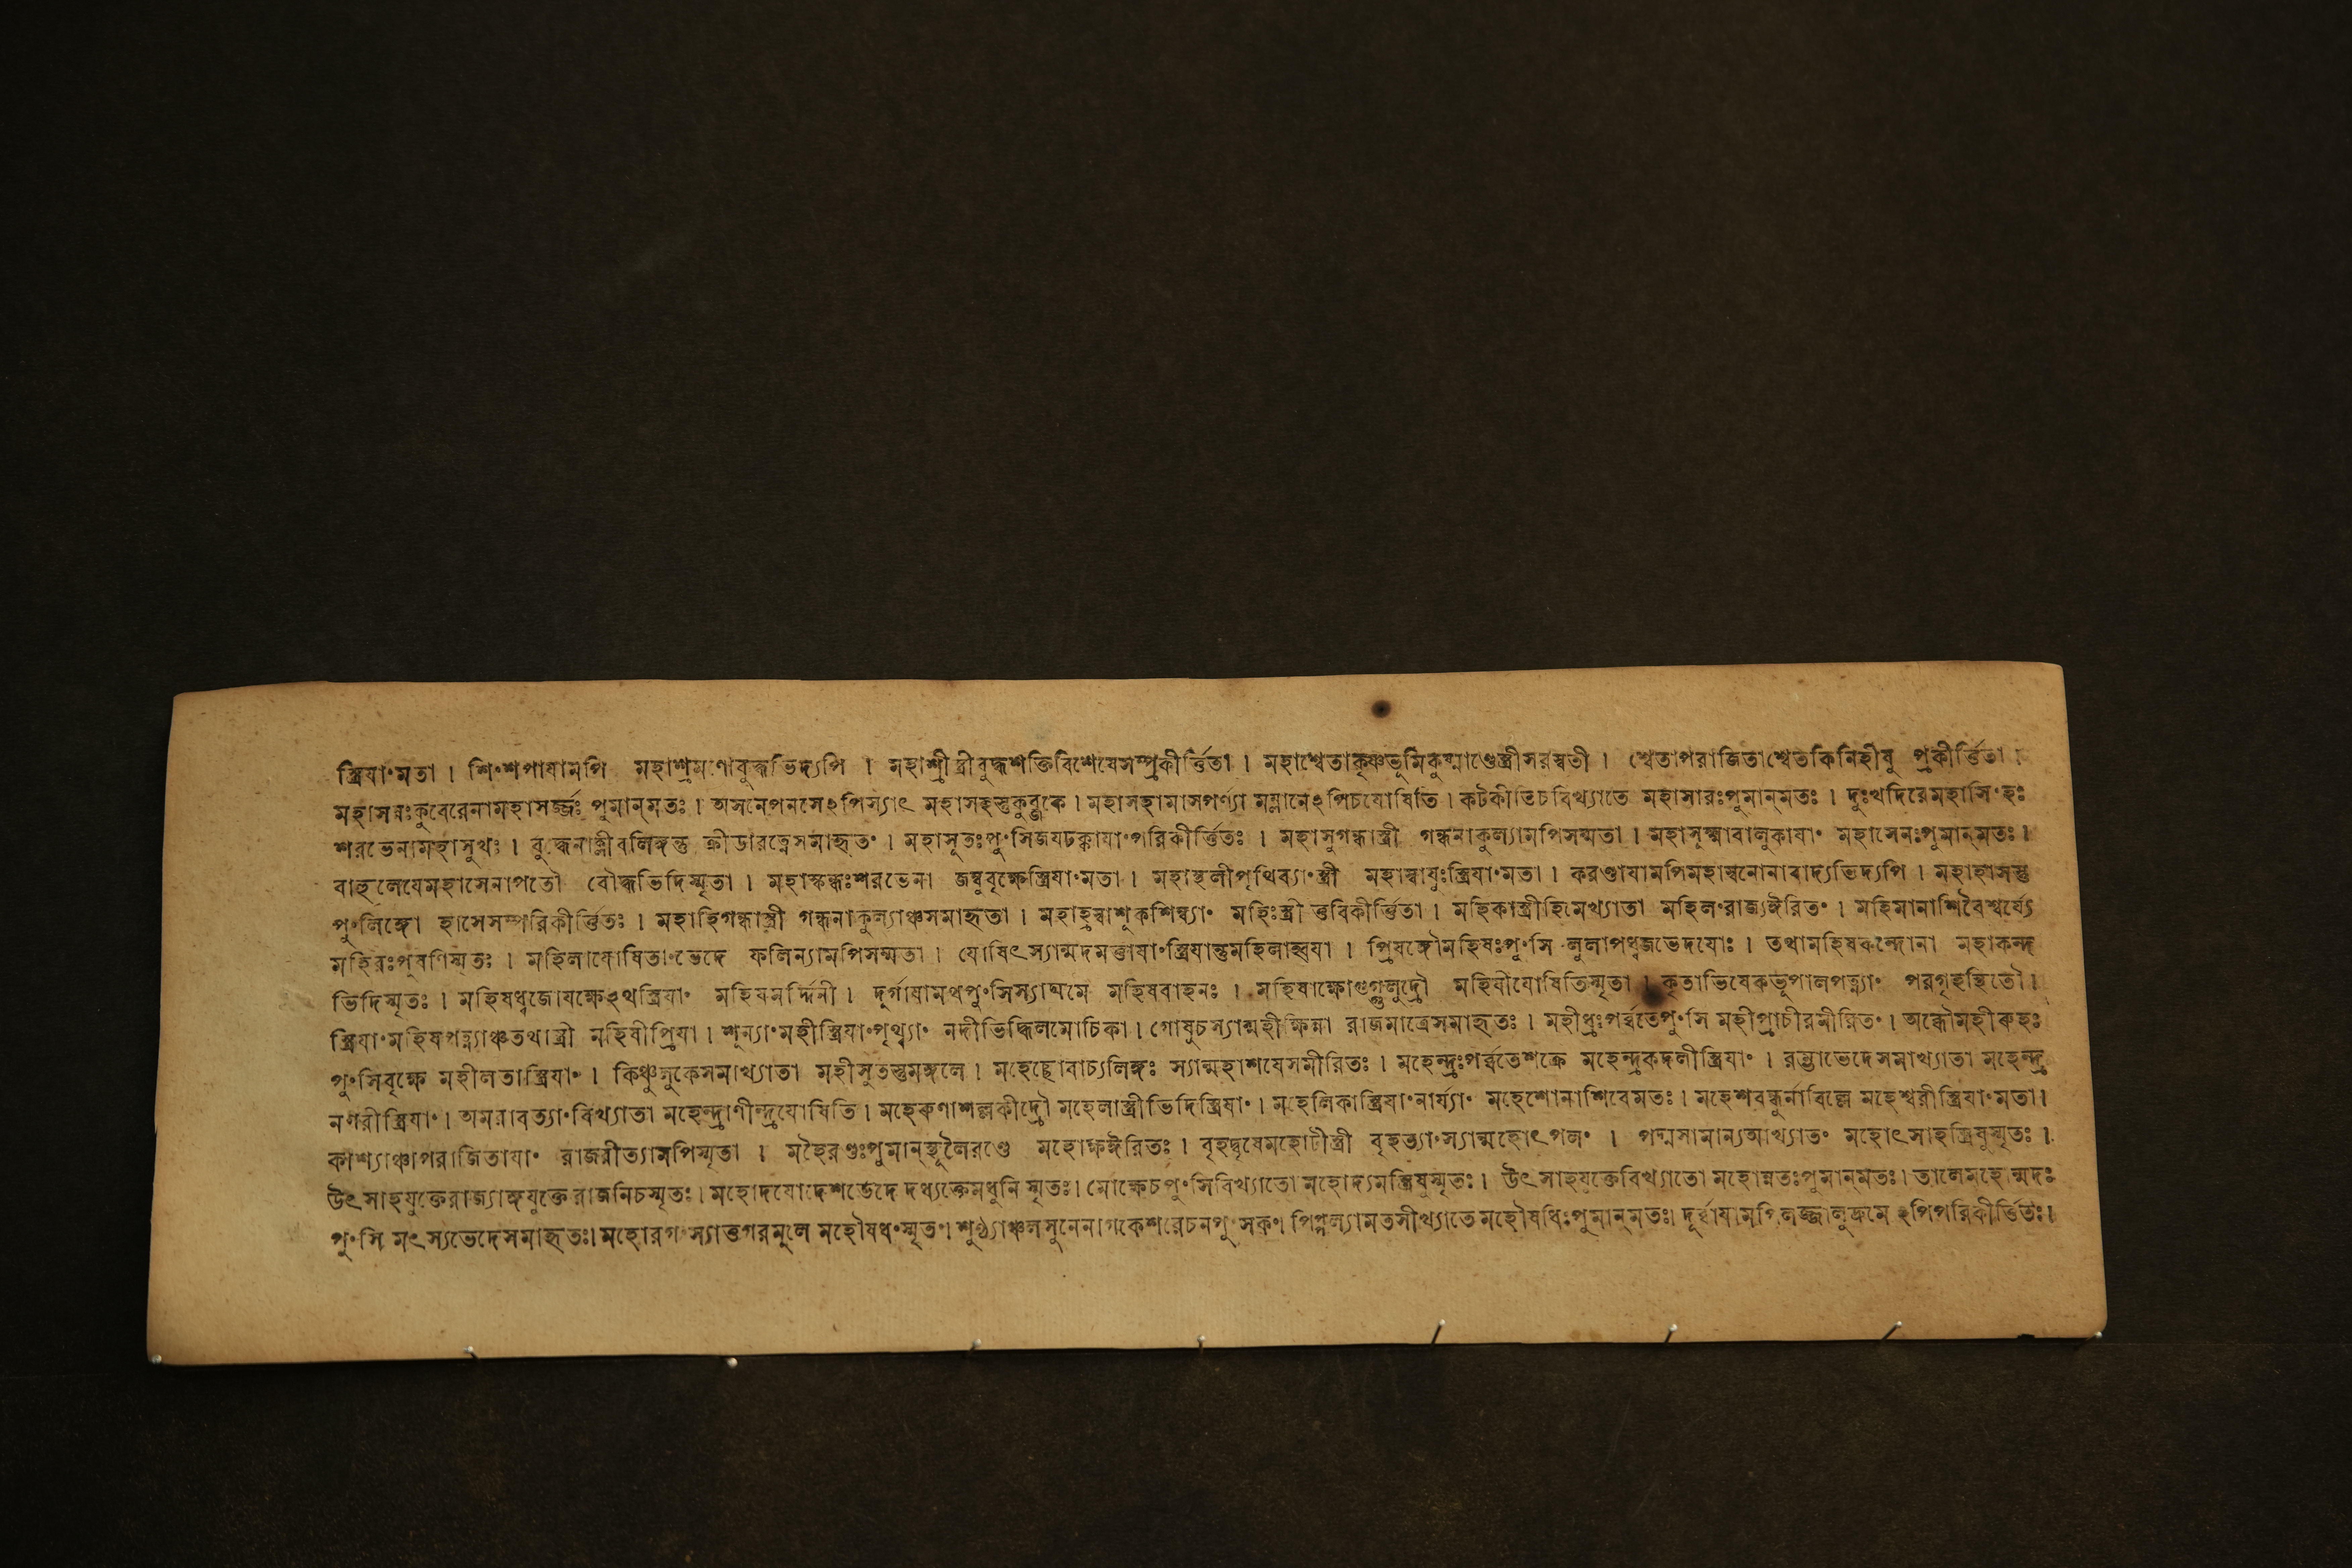 স্ত্রিযাংমতা । শিংশপাযামপি মহাশ্রমণোবুদ্ধভিদ্যপি । মহাশ্রীস্ত্রীবুদ্ধশক্তিবিশেষেসম্প্রকীর্ত্তিতা । মহাশ্বেতাকৃষ্ণভূমিকুষ্মাণ্ডেস্ত্রীসরস্বতী । শ্বেতাপরাজিতাশ্বেতকিনিহীষু প্রকীর্ত্তিতা ।
মহাসরঃকুবেরেনামহাসর্জ্জঃ পুমান্মতঃ । অসনেপনসেঽপিস্যাৎ মহাসহস্তুকুব্জকে । মহাসহামাসপর্ণ্যা মম্লানেঽপিচযোষিতি । কটকীতিচবিখ্যাতে মহাসারঃপুমান্মতঃ । দুঃখদিরেমহাসিংহঃ
শরভেনামহাসুখঃ । বুদ্ধেনাস্ত্রীবলিঙ্গন্তু ক্রীডারত্নেসমাহৃতং । মহাসূতঃপুংসিজযঢক্কাযাংপরিকীর্ত্তিতঃ । মহাসুগন্ধাস্ত্রী গন্ধনাকুল্যামপিসম্মতা । মহাসূক্ষ্মাবালুকাযাং মহাসেনঃপুমান্মতঃ ।
বাহুলেযেমহাসেনাপতৌ বৌদ্ধভিদিস্মৃতা । মহাস্কন্ধঃশরভেনা জম্বুবৃক্ষেস্ত্রিযাংমতা । মহাস্থলীপৃথিব্যাংস্ত্রী মহাস্বাযুঃস্ত্রিযাংমতা । করণ্ডাযামপিমহাস্বনোনাবাদ্যভিদ্যপি । মহাহাসস্তু
পুংলিঙ্গো হাসেসম্পরিকীর্ত্তিতঃ । মহাহিগন্ধাস্ত্রী গন্ধনাকুল্যাঞ্চসমাহৃতা । মহাহ্রস্বাশূকশিম্ব্যাং মহিঃস্ত্রী ত্তবিকীর্ত্তিতা । মহিকাস্ত্রীহিমেখ্যাতা মহিলংরাজ্যঈরিতং । মহিমানাশিবৈশ্বর্য্যে
মহিরঃপূষণিস্মতঃ । মহিলাযোষিতাংভেদে ফলিন্যামপিসম্মতা । যোষিৎস্যান্মদমত্তাযাংস্ত্রিযান্তুমহিলাহ্বযা । প্রিযঙ্গৌমহিষঃপুংসি লুলাপধ্বজভেদযোঃ । তথামহিষকন্দোনা মহাকন্দ
ভিদিস্মৃতঃ । মহিষধ্বজোযক্ষেঽথস্ত্রিযাং মহিষমর্দ্দিনী । দুর্গাযামথপুংসিস্যাদ্যমে মহিষবাহনঃ । মহিষাক্ষোগুগ্গুলুদ্রৌ মহিষীযোষিতিস্মৃতা । কৃতাভিষেকভূপালপত্ন্যাং পরগৃহস্থিতৌ ।
স্ত্রিযাংমহিষপত্ন্যাঞ্চতথাস্ত্রী মহিষীপ্রিযা । শূন্যাংমহীস্ত্রিযাংপৃথ্ব্যাং নদীভিদ্ধিলমোচিকা । গোষুচস্যান্মহীক্ষিন্না রাজমাত্রেসমাহৃতঃ । মহীধ্রঃপর্ব্বতেপুংসি মহীপ্রাচীরমীরিতং । অব্ধৌমহীরুহঃ
পুংসিবৃক্ষে মহীলতাস্ত্রিযাং । কিঞ্চুলুকেসমাখ্যাতা মহীসুতস্তুমঙ্গলে । মহেচ্ছোবাচ্যলিঙ্গঃ স্যান্মহাশযেসমীরিতঃ । মহেন্দ্রঃপর্ব্বতেশক্রে মহেন্দ্রকদলীস্ত্রিযাং । রম্ভাভেদেসমাখ্যাতা মহেন্দ্র
নগরীস্ত্রিযাং । অমরাবত্যাংবিখ্যাতা মহেন্দ্রাণীন্দ্রযোষিতি । মহেরুণাশল্লকীদ্রৌ মহেলাস্ত্রীভিদিস্ত্রিযাং । মহেলিকাস্ত্রিযাংনার্য্যাং মহেশোনাশিবেমতঃ । মহেশবন্ধুর্নাবিল্বে মহেশ্বরীস্ত্রিযাংমতা ।
কাংশ্যাঞ্চাপরাজিতাযাং রাজরীত্যামপিস্মৃতা । মহৈরণ্ডঃপুমান্স্থূলৈরণ্ডে মহোক্ষঈরিতঃ । বৃহদ্বৃষেমহোটীস্ত্রী বৃহত্যাংস্যান্মহোৎপলং । পদ্মসামান্যআখ্যাতং মহোৎসাহস্ত্রিষুস্মৃতঃ ।
উৎসাহযুক্তেরাজ্যাঙ্গযুক্তে রাজনিচস্মৃতঃ । মহোদযোদেশভেদে দধ্যক্তেমধুনি স্মৃতঃ । মোক্ষেচপুংসিবিখ্যাতো মহোদ্যমস্ত্রিষুস্মৃতঃ । উৎসাহযুক্তেবিখ্যাতো মহোন্নতঃপুমান্মতঃ । তালেমহোন্মদঃ
পুংসি মৎস্যভেদেসমাহৃতঃ । মহোরগংস্যাত্তগরমূলে মহৌষধংস্মৃতং । শুণ্ঠ্যাঞ্চলসুনেনাগকেশরেচনপুংসকং । পিপ্পল্যামতসীখ্যাতে মহৌষধিঃপুমান্মতঃ । দূর্ব্বাযামপিলজ্জালুদ্রুমেঽপিপরিকীর্ত্তিতঃ ।